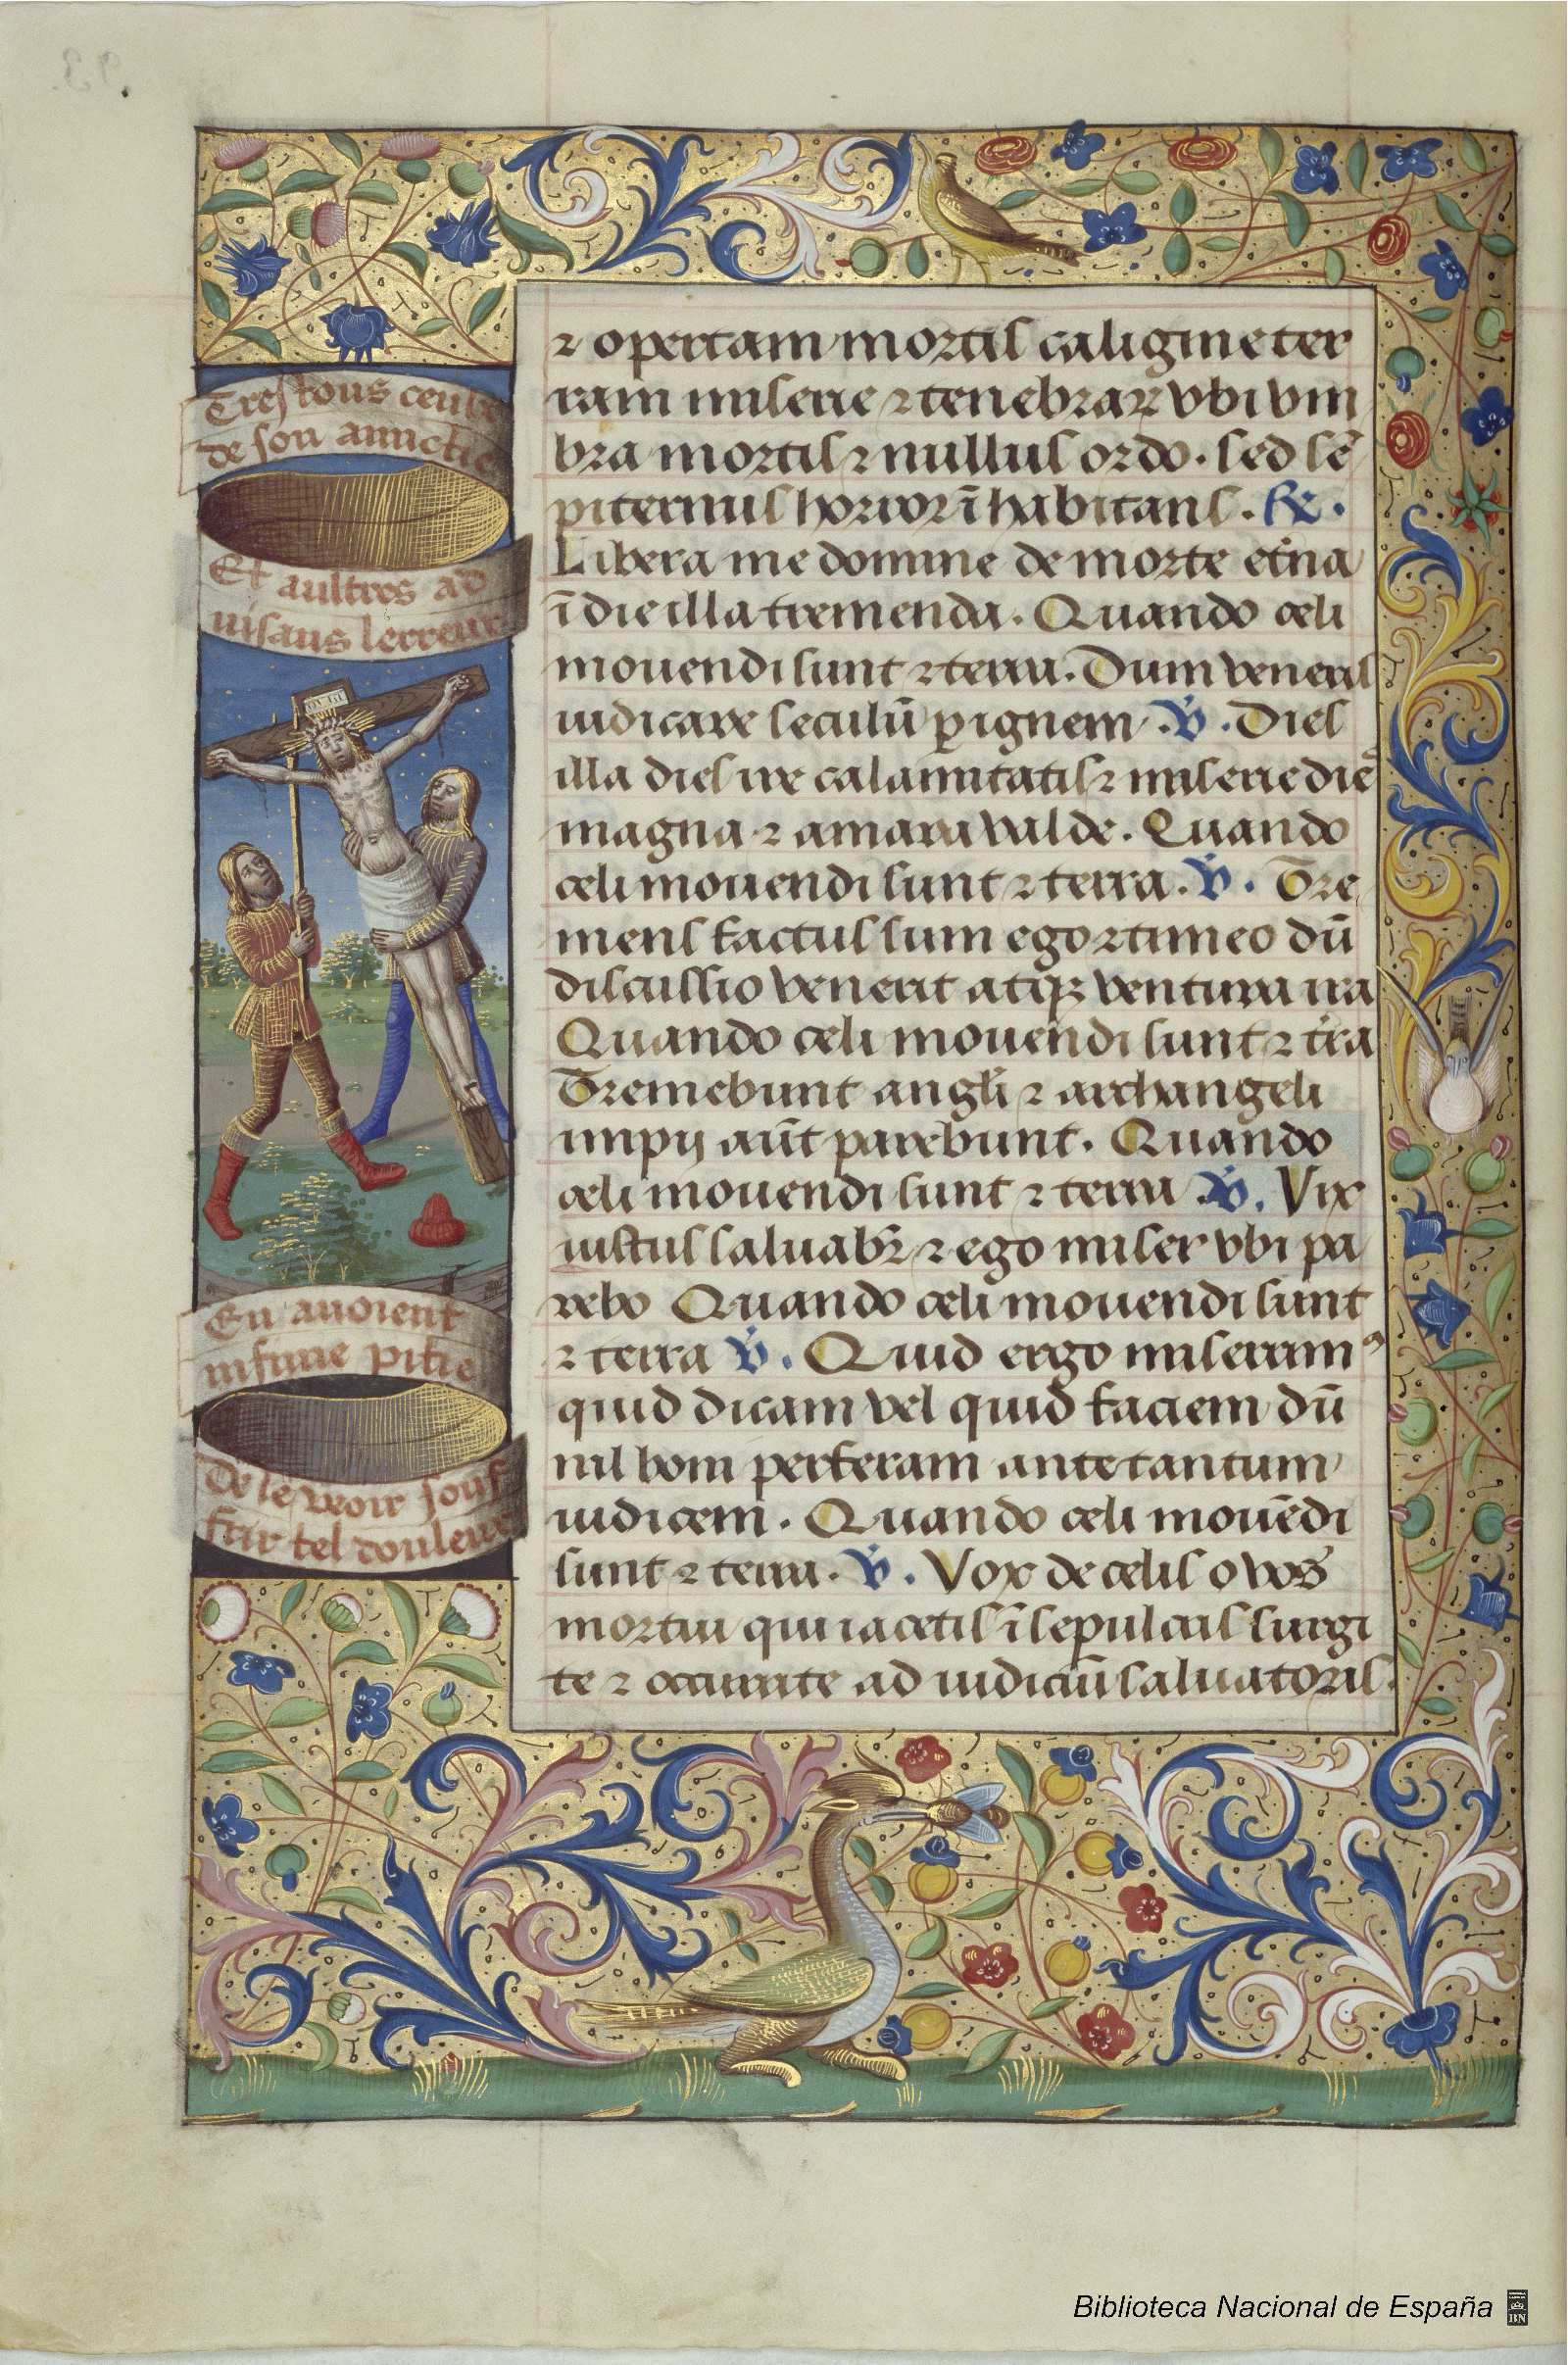 Trestous ceulx
de son amictie
Et aultres ad
visans lerreur
En avoient
infinie pitie
De le veoir souf
frir tel douleur
⁊ opertam mortis caligine ter
ram miserie ⁊ tenebraꝝ vbi vm
bra mortis ⁊ nullus ordo. sed sē
piternus horror īhabitans. ℟.
Libera me domine de morte et'na
ī die illa tremenda. Quando celi
mouendi sunt ⁊ terra. Dum veneris
iudicare seculū ꝑ ignem. ℣. Dies
illa dies ire calamitatis ⁊ miserie dies
magna ⁊ amara valde. Quando
celi mouendi sunt ⁊ terra. ℣. Tre
mens factus sum ego ⁊ timeo dū
discussio venerit atqꝫ ventura ira
Quando celi mouendi sunt ⁊ t'ra
Tremebunt angli ⁊ archangeli
impij aūt parebunt. Quando
celi mouendi sunt ⁊ terra ℣. Vix
iustus saluabr̄ ⁊ ego miser vbi pa
rebo Quando celi mouendi sunt
⁊ terra ℣. Quid ergo miserrimꝰ
quid dicam vel quid faciem dū
nil boni perferam ante tantum
iudicem. Quando celi mouēdi
sunt ⁊ terra. ℣. Vox de celis o vos
mortui qui iacetis ī sepulcris surgi
te ⁊ occurrite ad iudiciū saluatoris.
Biblioteca Nacional de España
BN